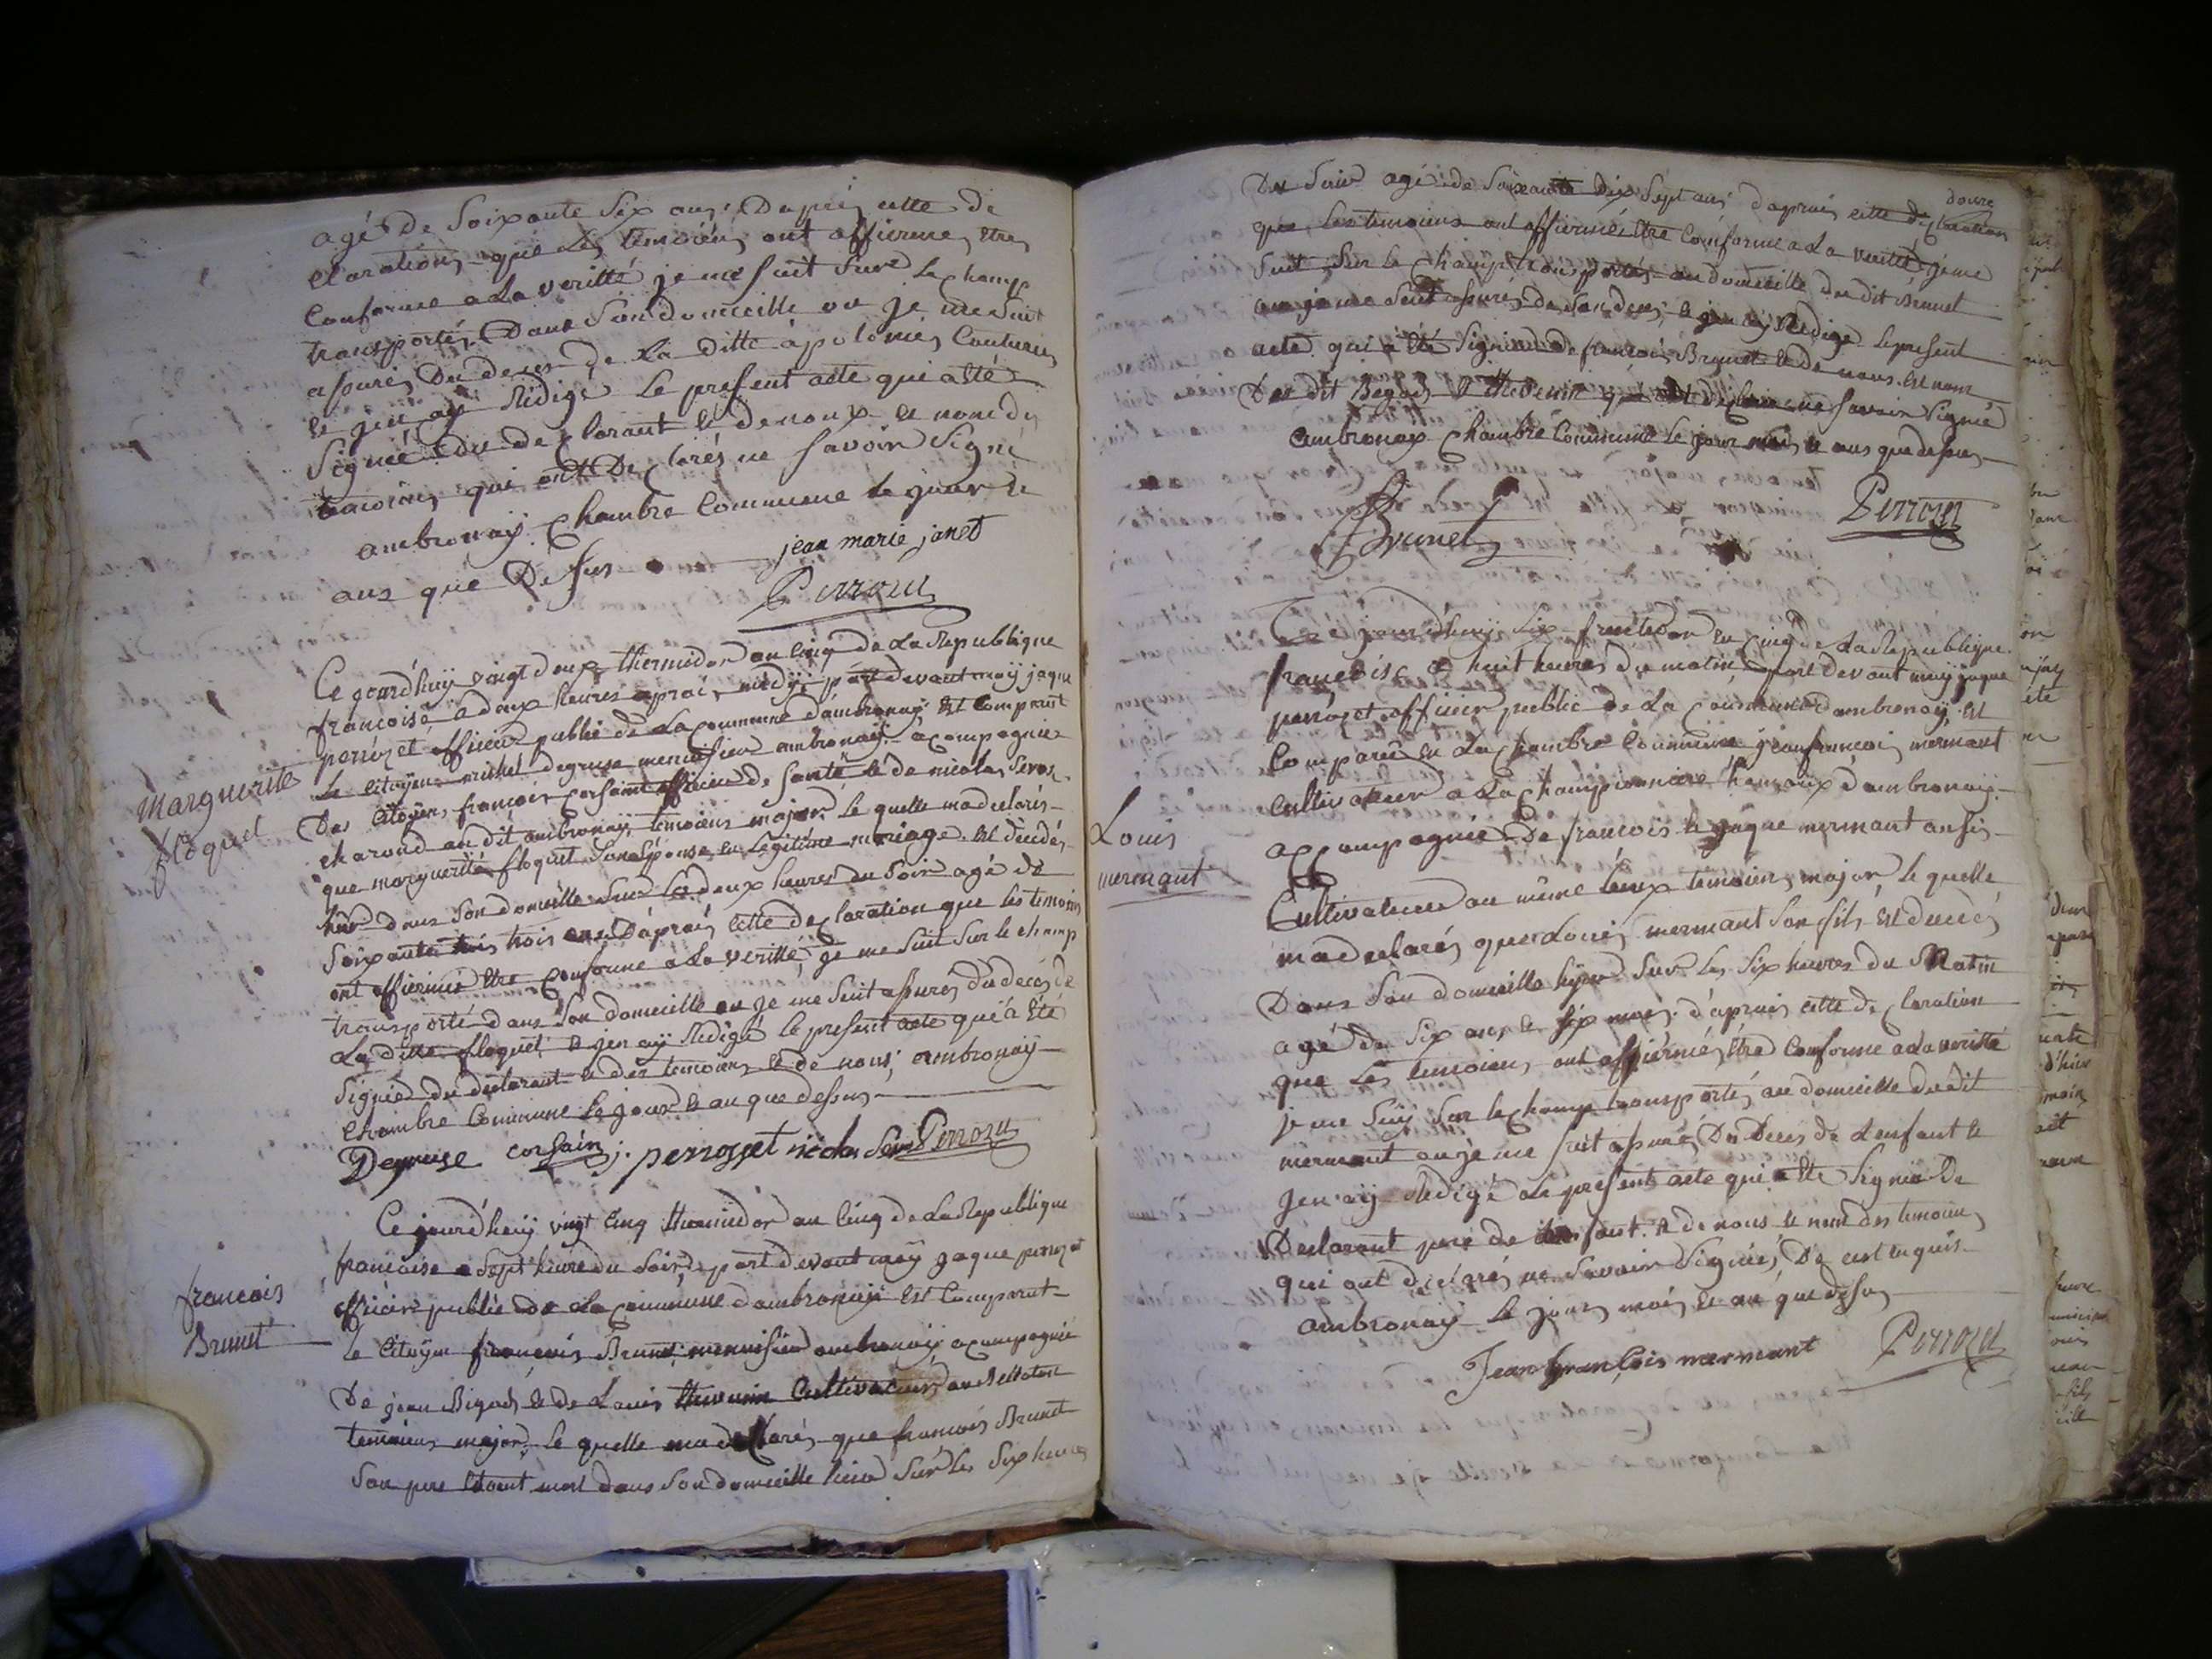 agé de Soixante Six ans, Daprés cette de
claration, que Les temoiens ont affiermé, Etre
Conforme a La veritté je me suit Sur Le champ
transportés Dans Son domicille ou je me Suit
assurés Du deces de La ditte apolonié Couturier
et jen ay Rédigé Le present acte qui a Eté
Signée du de clarant et de noux et non des
temoiens qui ont De clarés ne Savoir Signé
ambronaÿ Chambre Commune Le jour et
ans que Dessus
jean marie janet
Perrozet
Marguerite
floquet
Ce jourd'huÿ vingt deux thermidor an Cinq de La Republique
francoise a deux heures aprais midÿ, part devant moÿ jaque
perrozet officier public de La Commune dambronaÿ Est Comparut
Le Citoÿen michel degruse menuisier ambronaÿ, acompagnié
Des Citoÿens francois Corsain officier de Santé et de nicolas
charoud au dit ambronaÿ, temoiens major, Le quelle ma declarés
que marguerité floquet Son Epouse en Legitime mariage Est décédés
hier dans Son domicille Sur Les deux heures du Soir agé de
Soixante trois ans Daprais Cette declaration que Les temoins
ont affiermé Etre Conforme a La veritté, je me Suit Sur le champ
transporté dans Son domicille ou je me Suit assurés du deces de
La ditte floquet et jen aÿ Redigé Le present acte qui a Eté
Signié du declarant et des temoiens et de nous, ambronaÿ
Chambre Commune Le jour et an que dessus
Degruse corsain j. perrozzet nicolas Perrozet
francois
Brunet
Ce jourd'huÿ vingt Cinq thermidor an Cinq de La Republique
francoise a Sept heure du Soir, part devant moÿ jaque perrozet
officier public de La Commune dambronaÿ Est Comparut
Le Citoÿen francois Brunet menuisier ambronaÿ acompagnié
De jean Bigod, et de Louis thevenin Cultivateur au
temoiens major, Le quelle ma de clarés que francois Brunet
Son pere Etoient mort dans Son domicille hier Sur Les Six heures
Du Soir agé de Soixante Dix Sept ans daprais cette declaration
que Les temoiens ont affiermé, Etre Conforme a La veritté je me
Suit Sur Le Champ transportés au domicille du dit Brunet
ou je me Suit assurés de Son deces, et jen aÿ Redigé Le present
acte qui a Eté Signié de francois Brunet et de nous et non
Des dit Bigod, et thevenin qui ont declaré ne Savoir Signié
ambronaÿ Chambre Commune Le jour mois et ans que dessus
Brunet
Perrozet
Louis
mermant
Ce jourd'huÿ Six fructidor an Cinq de La Republique
francoise a huit heures du matin, part devant moÿ jaque
perrozet officier public de La Commune dambronaÿ, Est
Comparu en La Chambre Commune jean francois mermant
Cultivateur a La Championniere hameaux dambronaÿ
accompagnié De francois et jaque mermant ausis
Cultivateur au même Lieux temoiens major, Le quelle
ma declarés que Louis mermant Son fils Est decedés
Dans Son domicille hÿer Sur Les Six heures du Matin
agé de Six ans et Six mois, daprais cette de claration
que Les temoiens ont affiermé, Etre Conforme a La veritté
je me Suÿ Sur le Champ transportés au domicille dudit
mermant ou je me Suit assuré, Du Deces de Lenfant et
jen aÿ Redigé Le present acte qui a Eté Signié De
Declarant pere de Lenfant et de nous et non des temoiens
qui ont declarés ne Savoir Signiés, De ce enquis
ambronaÿ Le jour, mois et an que dessus
Jean francois mermant
Perrozet